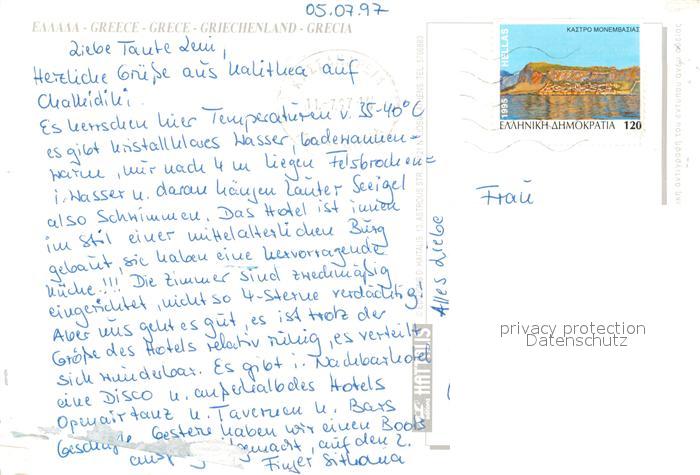 05.07.97
ΕΛΛΑΔΑ - GREECE - GRECE - GRIECHENLAND - GRECIA
Liebe Tante Leni,
Herzliche Grüße aus Kalithea auf
Chalkidiki.
Es herrschen hier Temperaturen v. 35-40°C
es gibt kristallklares Wasser, badewannen-
warm, nur nach 4 m liegen Felsbrocken
i. Wasser u. daran hängen lauter Seeigel
also Schwimmen. Das Hotel ist innen
im Stil einer mittelalterlichen Burg
gebaut, sie haben eine hervorragende
Küche!!! Die Zimmer sind zweckmäßig
eingerichtet, nicht so 4-Sterne verdächtig!
Aber uns geht es gut, es ist trotz der
Größe des Hotels relativ ruhig, es verteilt
sich wunderbar. Es gibt i. Nachbarhotel
eine Disco u. außerhalb des Hotels
Openairtanz u. Tavernen u. Bars
Gestern haben wir einen Boots
gemacht, auf den 2.
Finger Sithonia
Alles Liebe
HAITALIS
ΚΑΣΤΡΟ ΜΟΝΕΜΒΑΣΙΑΣ
HELLAS
1995
ΕΛΛΗΝΙΚΗ ΔΗΜΟΚΡΑΤΙΑ 120
Frau
privacy protection
Datenschutz